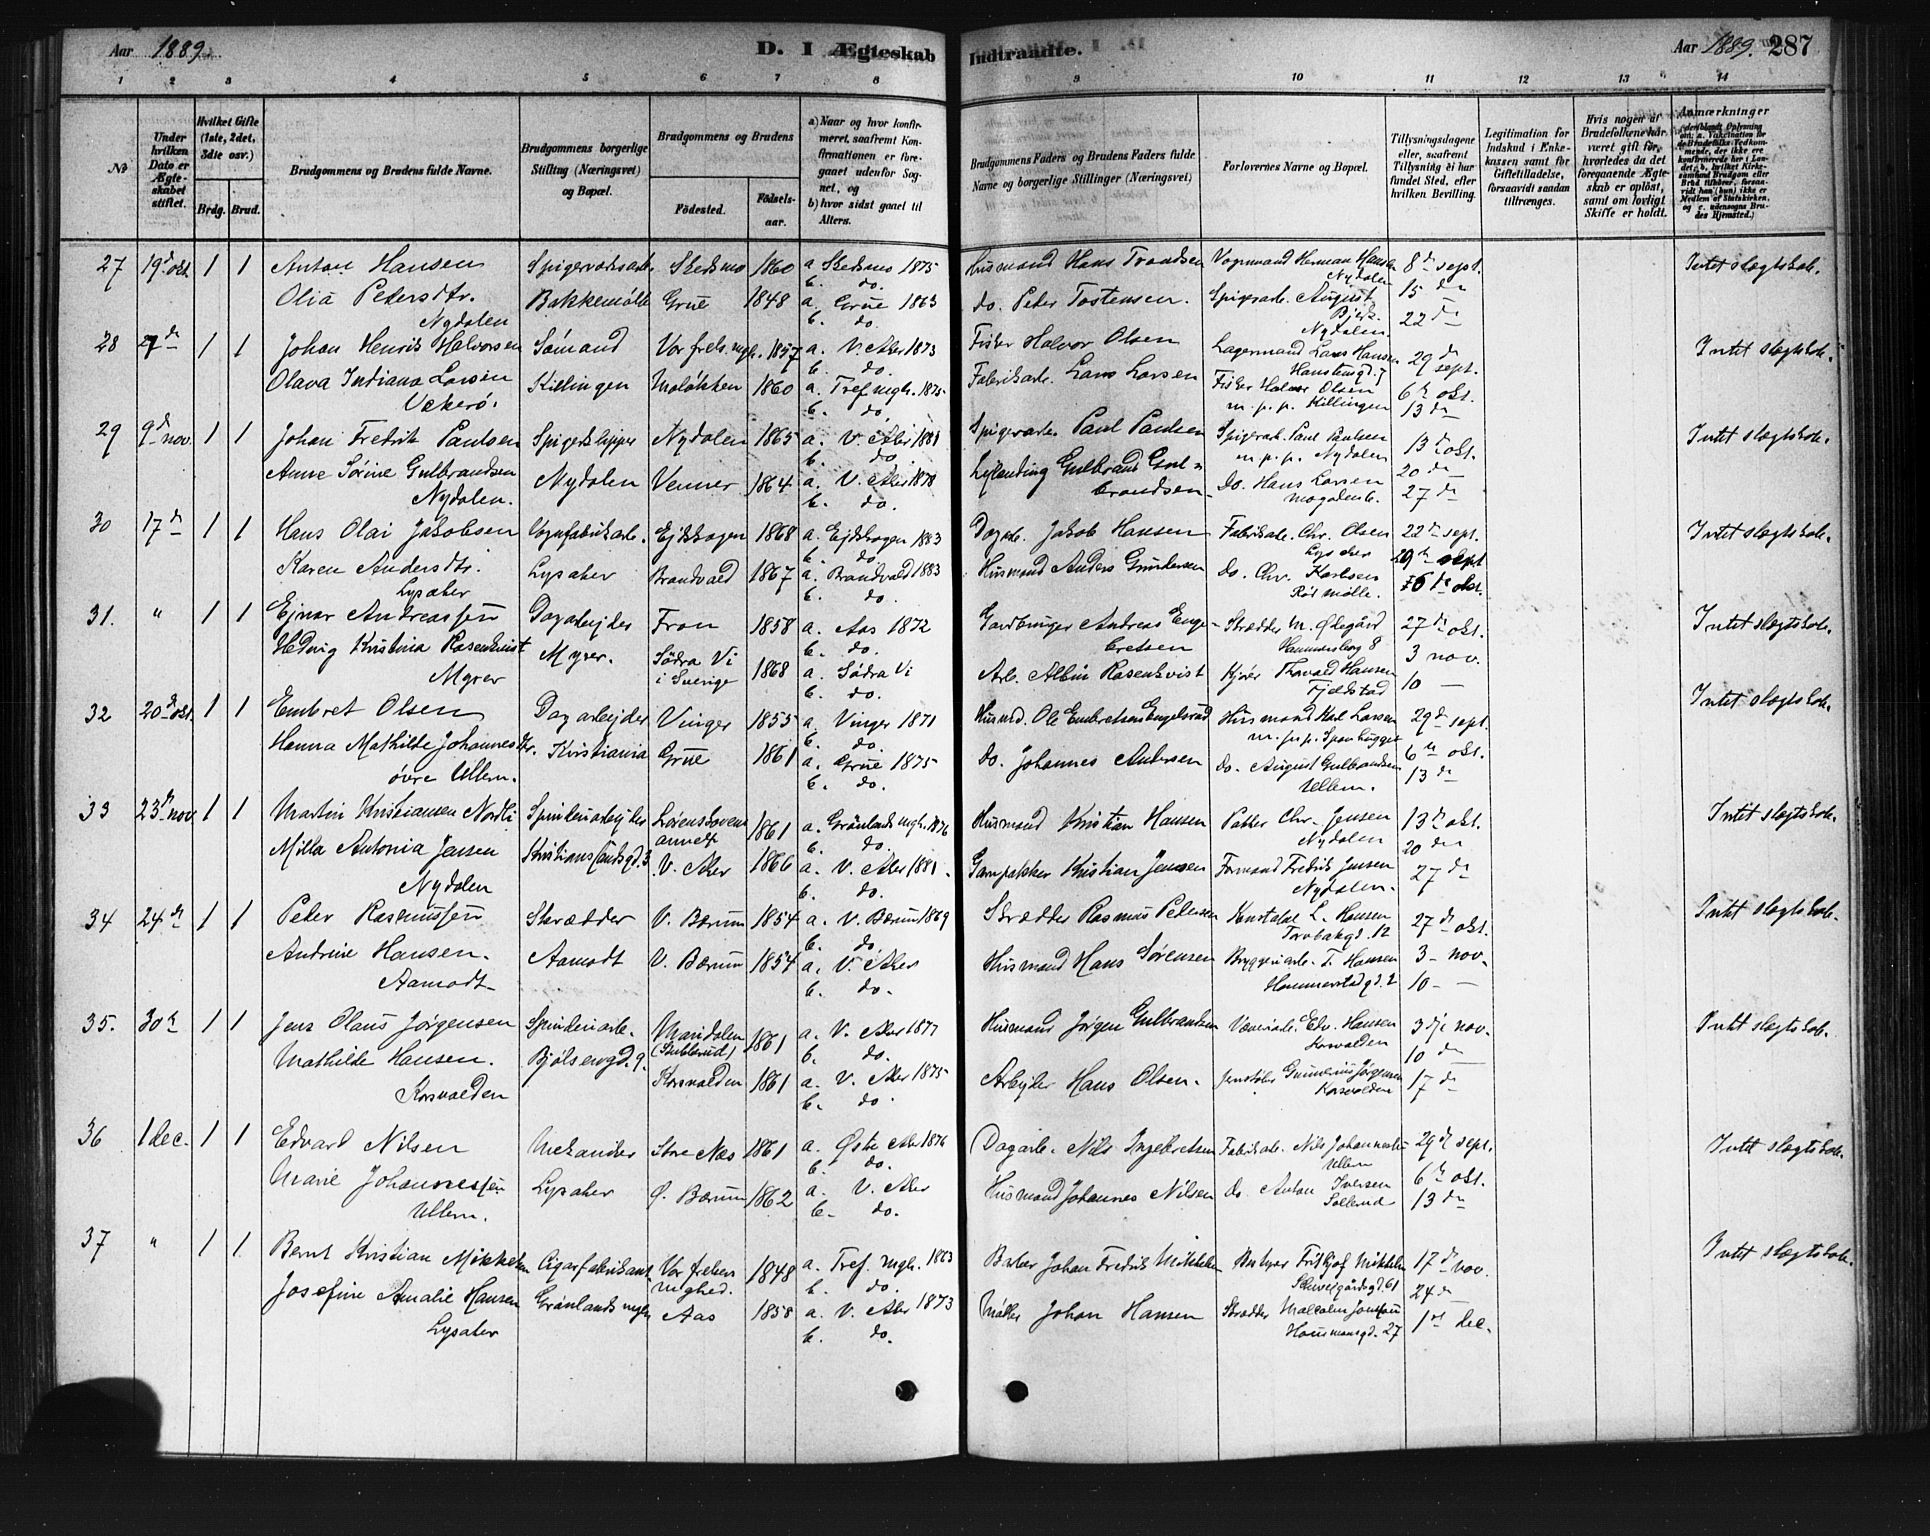 Aar 1889. D. I Ægteskab Indtraadte. Aar 1889. 287
1 2 3 4 5 6 7 8 9 10 11 12 13 14
No
Under hvilken Dato er Ægteskabet stiftet.
Hvilket Gifte (1ste, 2det, 3die osv.)
Brdg. Brud.
Brudgommens og Brudens fulde Navne.
Brudgommens borgerlige Stilling (Næringsvei) og Bopæl.
Brudgommens og Brudens
Födested. Födselsaar.
a) Naar og hvor konfirmeret, saafremt Konfirmationen er foregaaet udenfor Sognet, og
b) hvor sidst gaaet til Alters.
Brudgommens Faders og Brudens Faders fulde Navne og borgerlige Stillinger (Næringsvei)
Forlovernes Navne og Bopæl.
Tillysningsdagene eller, saafremt Tillysning ei har fundet Sted, efter hvilken Bevilling.
Legitimation for Indskud i Enkekassen samt for Giftetilladelse, forsaavidt saadan tiltrænges.
Hvis nogen af Brudefolkene har været gift før, hvorledes da det foregaaende Ægteskab er opløst, samt om lovligt Skifte er holdt.
Anmærkninger
27 19de okt. 1 1 Anton Hansen Spigerverksarb. Skedsmo 1860 a Skedsmo 1875 Husmand Hans Trondsen Vognmand Herman Hansen Nydalen 8de sept. Intet slægtskab.
Olia Petersdtr. Nydalen Bakkemølle Grue 1848 a. Grue 1863 b. do. do. Peter Tostensen. Spigerarb. August Bjerk. Nydalen 15 de 22 de
28 27de 1 1 Johan Henrik Halvorsen Sömand Vor frels. mgh. 1857 a. V. Aker 1873 b. do. Fisker Halvor Olsen Lagermand Lars Hansen 29de sept. Intet slægtskab.
Olava Indiana Larsen Vækerö. Killingen Moløkken 1860 a. Tref. mgh. 1875 b. do. Fabrikarb. Lars Larsen Fisker Halvor Olsen m. p. p. Killingen 6te okt. 13 de
29 9de nov. 1 1 Johan Fredrik Paulsen Spigerklipper Nydalen 1865 a. V. Aker 1881 b. do. Spigerarb. Paul Paulsen Spigerarb. Paul Paulsen m. p. p. Nydalen 13de okt. Intet slægtskab.
Anne Sörine Gulbrandsen Nydalen. Nydalen Venner 1864 a. V. Aker 1878 b. do. Gulbrand Gulbrandsen do. Hans Larsen 20 de 27 de
30 17de 1 1 Hans Olai Jakobsen Vognfabrikarb. Ejdskogen 1868 a. Ejdskogen 1883 b. do. Dagarb. Jakob Hansen Fabrikarb. Chr. Olsen Lysaker 22de sept. Intet slægtskab.
Karen Andersdtr. Lysaker Lysaker Brandvold 1867 a. Brandvold 1883 b. do. Husmand Anders Gundersen do. Chr. Karlsen 29de sept 6te okt.
31. " 1 1 Ejnar Andreassen Dagarbejder Fron 1858 a. Aas 1872 b. do. Gardbruger Andreas Engebretsen Skrædder M. Ødegård Hammersborg 8 27de okt. Intet slægtskab.
Hedvig Kristina Rosenkvist Myrer Myrer. Södra Vi i Sverige 1868 a. Södra Vi b. do. Arb. Albin Rosenkvist Kjører Thorvald Hansen Fjeldstad 3 nov. 10 —
32 20de okt. 1 1 Embret Olsen Dagarbejder Vinger 1855 a. Vinger 1871 b. do. Husmd. Ole Embretsen Engelsrud Husmand Karl Larsen m. p. p. 29de sept. Intet slægtskab.
Hanna Mathilde Johannesdtr. övre Ullern. Kristiania Grue 1861 a. Grue 1875 b. do. do. Johannes Andersen do. August Gulbrandsen Ullern. 6te okt. 13 de
33 23de nov 1 1 Martin Kristiansen Nordli Spinderiarbejder Lörenskovens annex 1861 a. Grönlands mgh. 1876 b. do. Husmand Kristian Hansen Pakker Chr. Jensen Nydalen 13de okt. Intet slægtskab.
Milla Antonia Jensen Nydalen Kristianslandsgd. 3 V. Aker 1866 a. V. Aker 1881. b. do. Garnpakker Kristian Jensen Formand Fredrik Jensen Nydalen. 20 de 27 de
34 24de 1 1 Peter Rasmussen Skrædder V. Bærum 1854 a. V. Bærum 1869 b. do. Skrædder Rasmus Petersen Konstabel L. Hansen Torvbakgd. 12 27de okt. Intet slægtskab.
Andrine Hansen. Aamodt Aamodt V. Bærum 1854 a. V. Aker b. do. Husmand Hans Sörensen Bryggeriarb. T. Hansen Hammerstadgd. 2 3 nov. 10 —
35. 30te 1 1 Jens Olaus Jörgensen Spinderiarb. Maridalen (Skubberud) 1861 a. V. Aker 1877 b. do. Husmand Jörgen Gulbrandsen Væveriarb. Edv. Hansen Korsvolden 3dje nov. Intet slægtskab.
Mathilde Hansen. Korsvolden Bjölsengd. 9. Korsvolden 1861 a. V. Aker 1875 b. do. Arbejder Hans Olsen. Jernstöber Gunnerius Jörgensen Korsvolden 10 de 17 de
36 1 dec. 1 1 Edvard Nilsen Mekaniker Store Næs 1861 a. Østre Aker 1876 b. do. Dagarb. Nils Ingebretsen Fabrikarb. Nils Johannesen Ullern 29de sept. Intet slægtskab.
Marie Johannessen Ullern. Lysaker Ø. Bærum 1862 a. V. Aker b. do. Husmand Johannes Nilsen do. Anton Iversen Sollerud 6te okt. 13 de
37 " 1 1 Bernt Kristian Mikkelsen Cigarfabrikant Vor frelsers mghed. 1848 a. Tref. mgh. 1863 b. do. Barber Johan Fredrik Mikkelsen Bestyrer Fritjof Mikkelsen Schweigårdsgd. 61 17de nov. Intet slægtskab.
Josefine Amalie Hansen Lysaker Grönlands mgh. Aas 1858 a. V. Aker 1873 b. do. Möller Johan Hansen Skrædder Malcolm Jonsson Hausmannsgd. 27 24de 1ste dec.